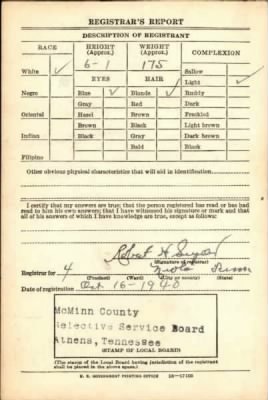 REGISTRAR'S REPORT
DESCRIPTION OF REGISTRANT
RACE HEIGHT (Approx.) WEIGHT (Approx.) COMPLEXION
White ✓ 6-1 175 Sallow
EYES HAIR Light ✓
Negro Blue ✓ Blonde ✓ Ruddy
Gray Red Dark
Oriental Hazel Brown Freckled
Brown Black Light brown
Indian Black Gray Dark brown
Bald Black
Filipino
Other obvious physical characteristics that will aid in identification
I certify that my answers are true; that the person registered has read or has had
read to him his own answers; that I have witnessed his signature or mark and that
all of his answers of which I have knowledge are true, except as follows:
(Signature of registrar)
Registrar for 4
(Precinct) (Ward) (City or county) (State)
Date of registration Oct 16-1940
McMinn County
Selective Service Board
Athens, Tennessee
(STAMP OF LOCAL BOARD)
(The stamp of the Local Board having jurisdiction of the registrant
shall be placed in the above space.)
U. S. GOVERNMENT PRINTING OFFICE 16—17105